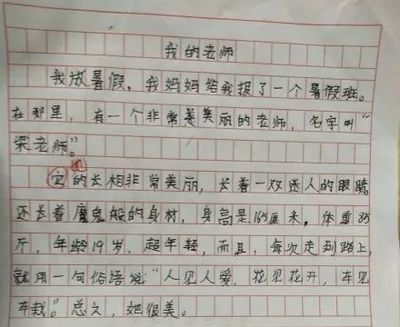 我的老师
我放暑假，我妈妈给我报了一个暑假班。
在那里，有一个非常美丽的老师，名字叫“
梁老师”。
她
它的长相非常美丽，长着一双迷人的眼睛
还长着魔鬼般的身材，身高是165厘米，体重85
斤，年龄19岁，超年轻，而且，每次走到路上，
就用一句俗语说“人见人爱，花见花开，车见
车栽”。总之，她很美。